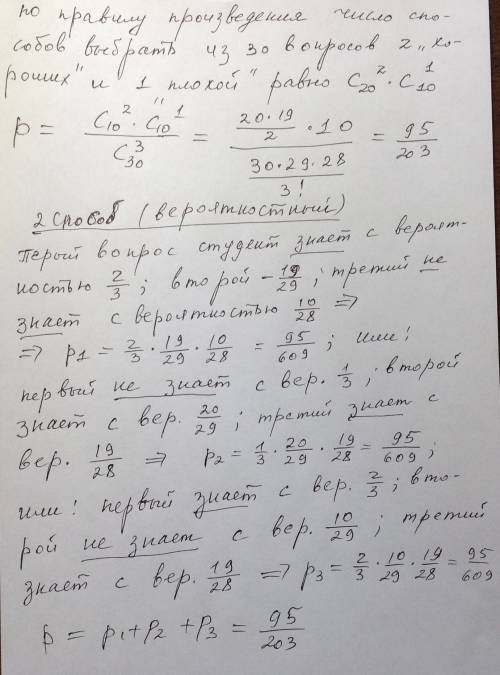 по правилу произведения число спо-
собов выбрать из 30 вопросов 2 „хо-
роших" и 1 плохой" равно C₂₀² · C₁₀¹
p = C₁₀² · C₁₀¹ / C₃₀³ = (20·19/2 · 10) / (30·29·28/3!) = 95/203
2 способ (вероятностный)
перый вопрос студент знает с вероят-
ностью 2/3; второй – 19/29; третий не
знает с вероятностью 10/28 ⇒
⇒ p1 = 2/3 · 19/29 · 10/28 = 95/609; или!
первый не знает с вер. 1/3; второй
знает с вер. 20/29; третий знает с
вер. 19/28 ⇒ p₂ = 1/3 · 20/29 · 19/28 = 95/609;
или! первый знает с вер. 2/3; вто-
рой не знает с вер. 10/29; третий
знает с вер. 19/28 ⇒ p₃ = 2/3 · 10/29 · 19/28 = 95/609
p = p₁ + p₂ + p₃ = 95/203